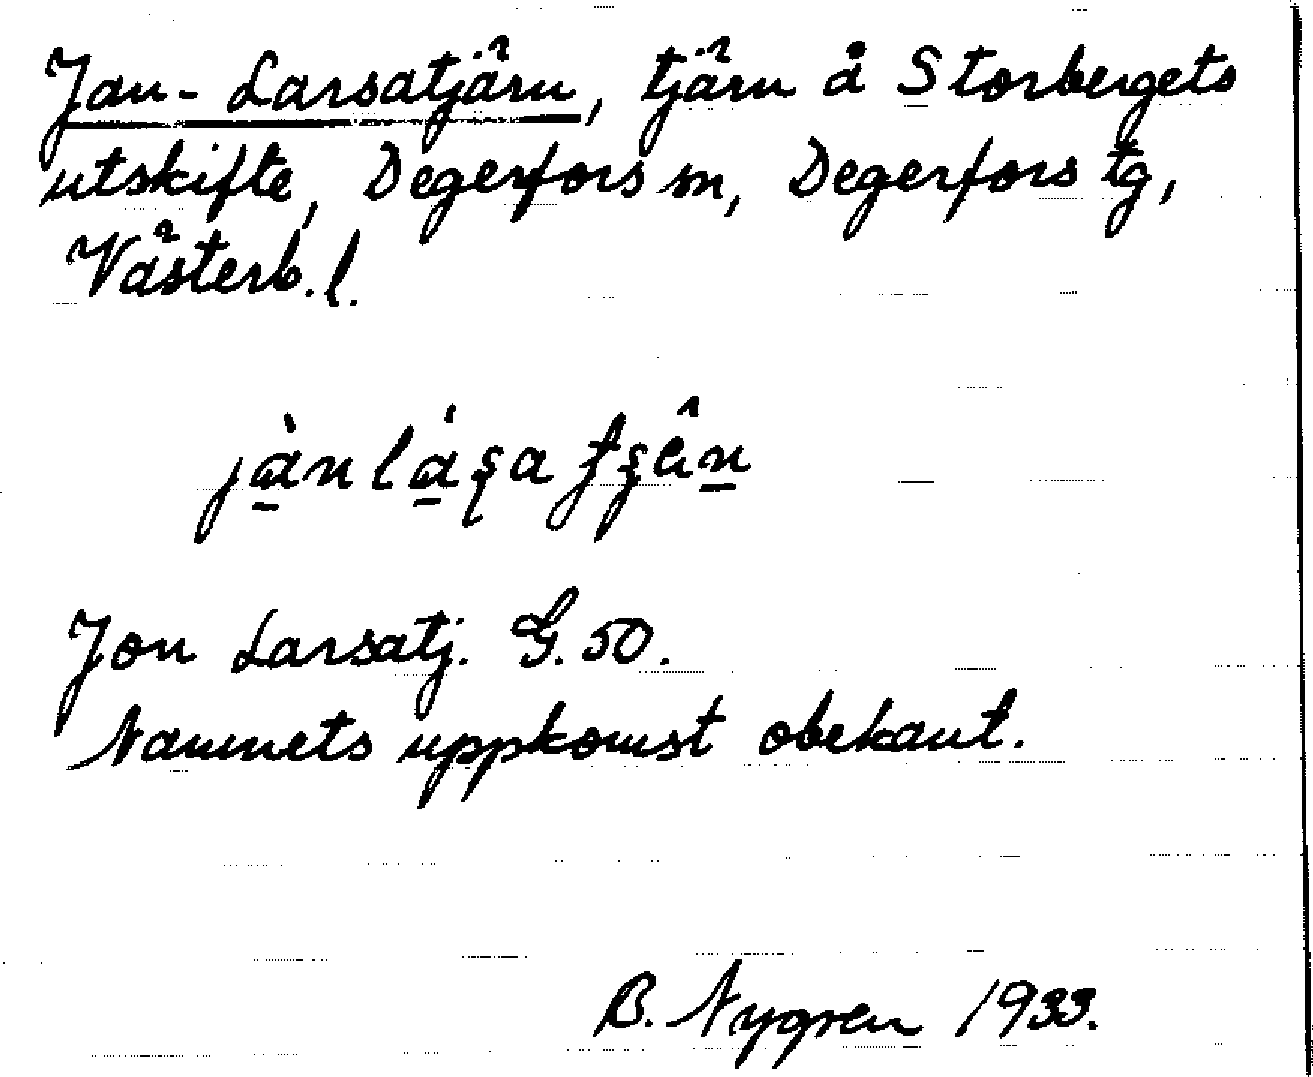 Jan-Larsatjärn, tjärn å Storbergets
utskifte, Degerfors sn, Degerfors tg,
Västerb. l.
Jon Larsatj. G. 50.
Namnets uppkomst obekant.
B. Nygren 1933.